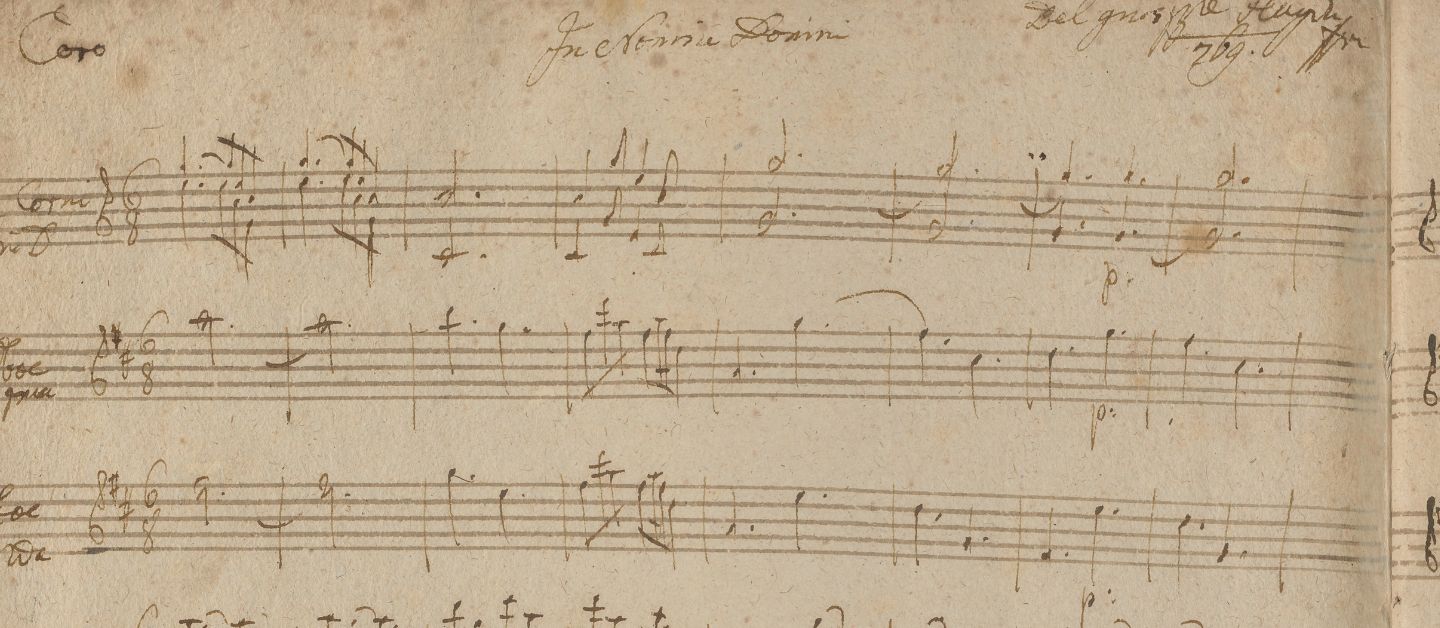 Coro In Nomine Domini Del giuseppe Haydn
769.
Corni
in D
6
8
p.
Oboe
6
8
p:
Oboe
6
8
2da
p: